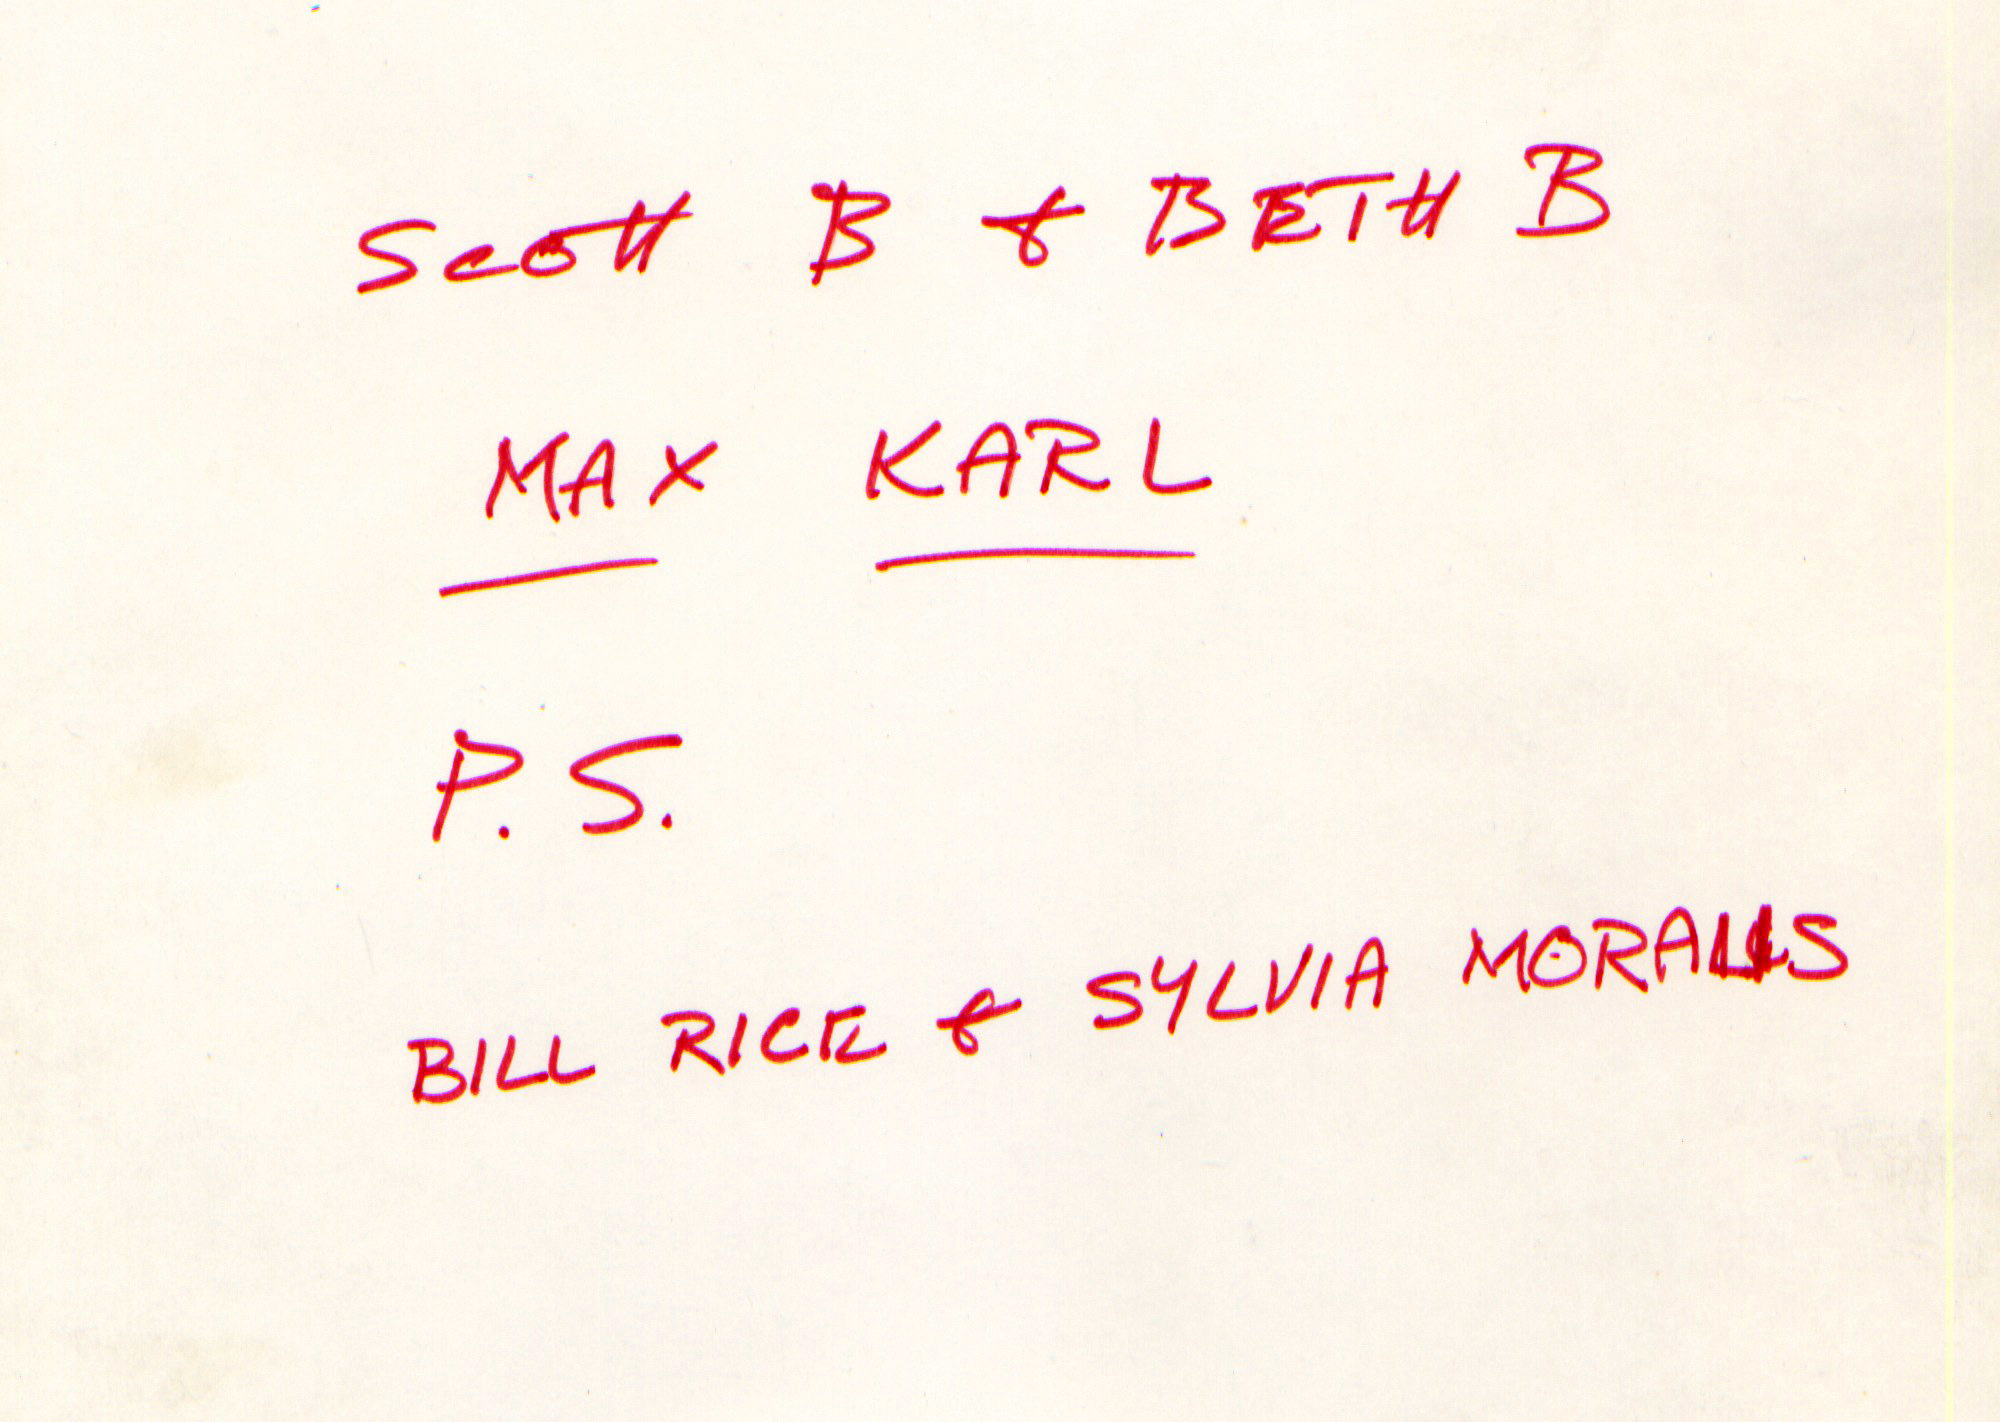 Scott B & BETH B
MAX KARL
P.S.
BILL RICE & SYLVIA MORALLS